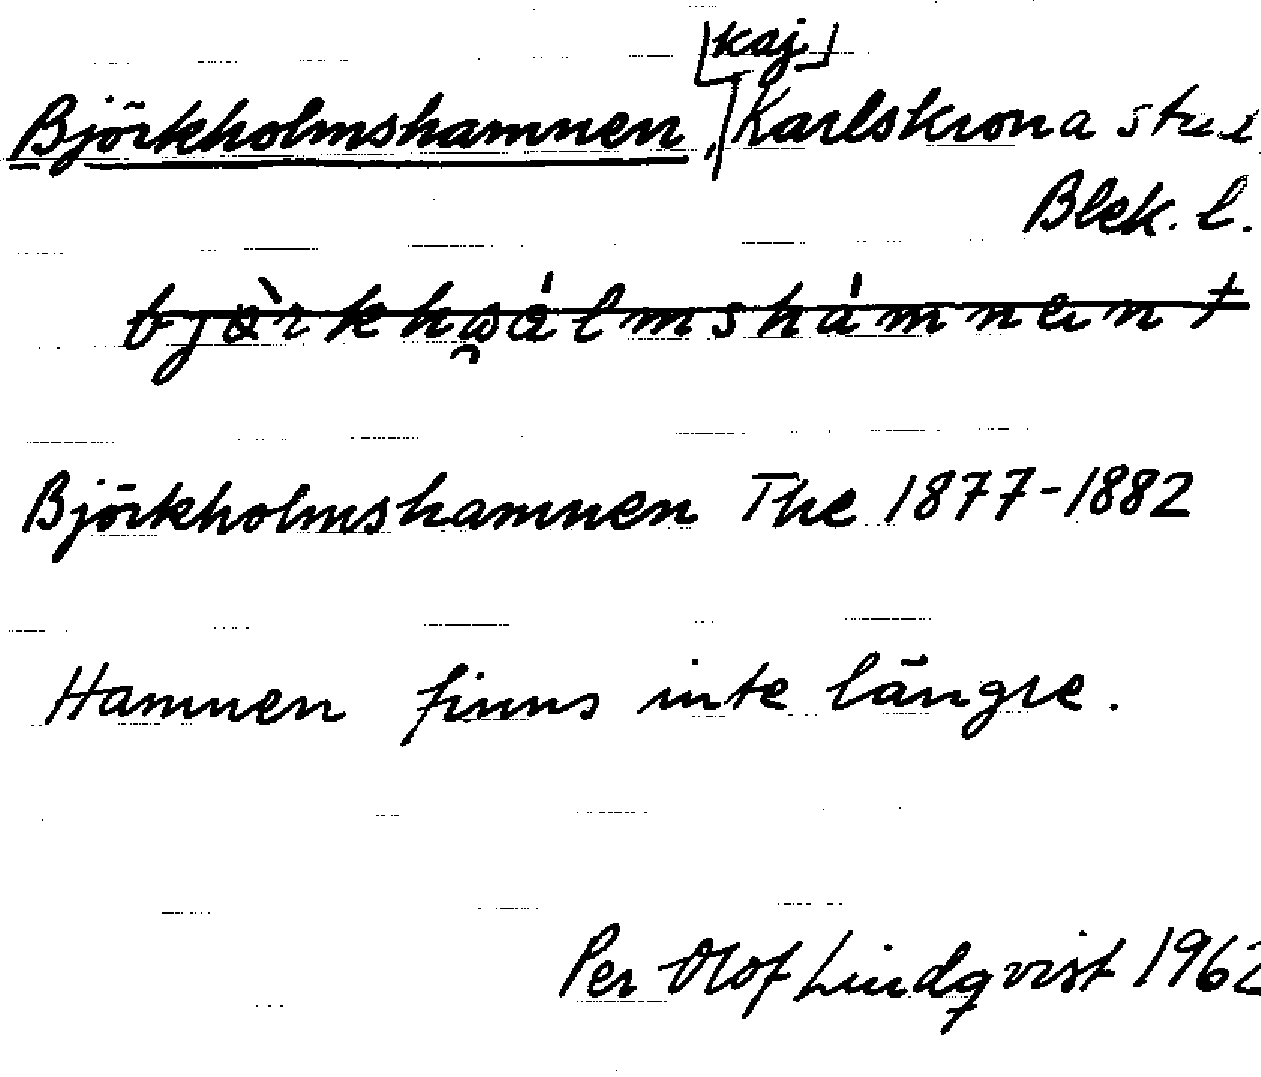 [kaj]
Björkholmshamnen, Karlskrona stad
Blek. l.
Björkholmshamnen The 1877-1882
Hamnen finns inte längre.
Per Olof Lindqvist 1962